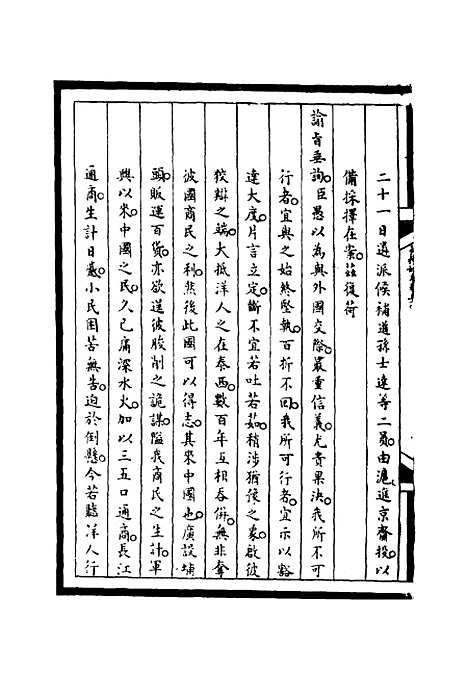 二十一日遴派候補道孫士達等二員由滬進京齎投以
備採擇在案茲復荷
諭旨垂詢臣愚以為與外國交際最重信義尤貴果決我所不可
行者宜與之始終堅執百折不回我所可行者宜示以豁
達大度片言立定斷不宜若吐若茹稍涉猶豫之象啟彼
狡辯之端大抵洋人之在泰西數百年互相吞併無非奪
彼國商民之利然後此國可以得志其來中國也廣設埔
頭販運百貨亦欲逞彼朘削之詭謀隘我商民之生計軍
興以來中國之民久已痛深水火加以三五口通商長江
通商生計日蹙小民困苦無告迫於倒懸今若聽洋人行